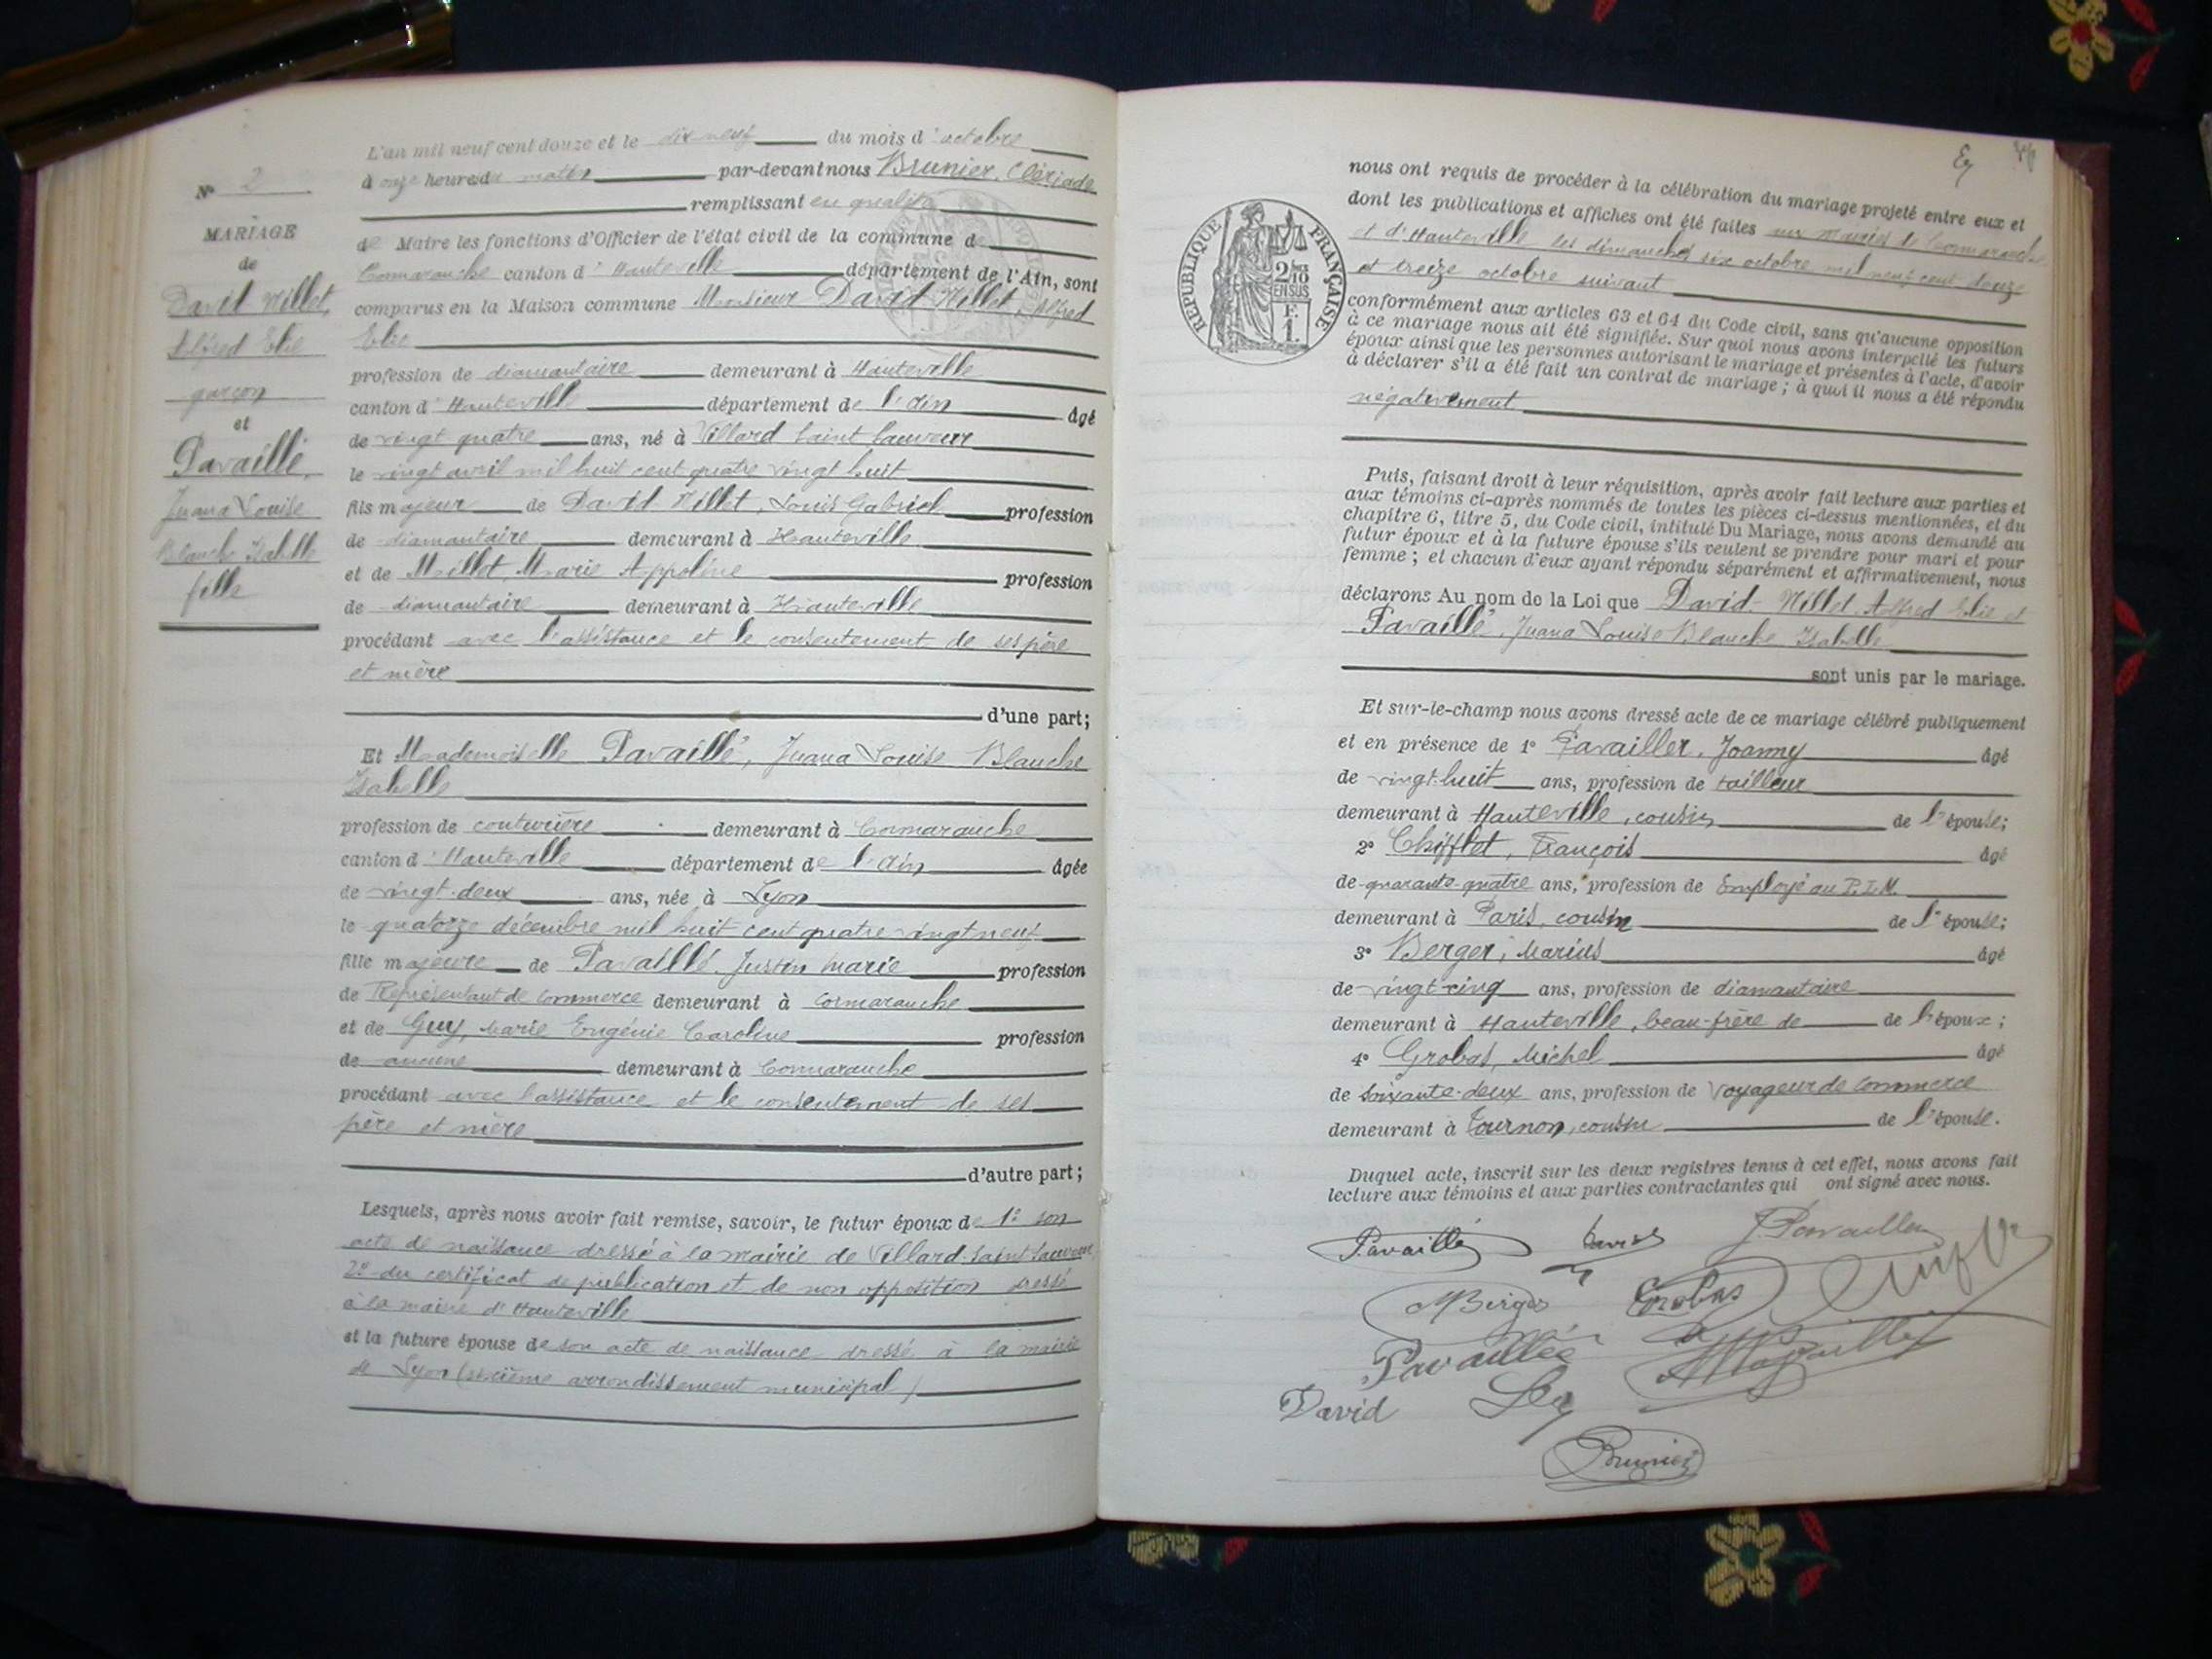 L'an mil neuf cent douze et le dix-neuf du mois d'octobre
à onze heures du matin par-devant nous Brunier, Clériade
remplissant en qualité
de Maire les fonctions d'Officier de l'état civil de la commune de
Cormaranche canton d'Hauteville département de l'Ain, sont
comparus en la Maison commune Monsieur David Millet, Alfred
Elie
profession de diamantaire demeurant à Hauteville
canton d'Hauteville département de l'Ain âgé
de vingt quatre ans, né à Villard Saint Sauveur
le vingt avril mil huit cent quatre vingt huit
fils majeur de David Millet, Louis Gabriel profession
de diamantaire demeurant à Hauteville
et de Millet, Marie Appoline profession
de diamantaire demeurant à Hauteville
procédant avec l'assistance et le consentement de ses père
et mère
d'une part;
Et Mademoiselle Pavaillé, Juana Louise Blanche
Isabelle
profession de couturière demeurant à Cormaranche
canton d'Hauteville département de l'Ain âgée
de vingt-deux ans, née à Lyon
le quatorze décembre mil huit cent quatre-vingt neuf
fille majeure de Pavaillé, Justin Marie profession
de Représentant de commerce demeurant à Cormaranche
et de Guy, Marie Eugénie Caroline profession
de aucune demeurant à Cormaranche
procédant avec l'assistance et le consentement de ses
père et mère
d'autre part;
Lesquels, après nous avoir fait remise, savoir, le futur époux de 1° son
acte de naissance dressé à la mairie de Villard-Saint-Sauveur
2° du certificat de publication et de non opposition dressé
à la mairie d'Hauteville
et la future épouse de son acte de naissance dressé à la mairie
de Lyon (sixième arrondissement municipal)
N° 2
MARIAGE
de
David Millet,
Alfred Elie
garçon
et
Pavaillé,
Juana Louise
Blanche Isabelle
fille
nous ont requis de procéder à la célébration du mariage projeté entre eux et
dont les publications et affiches ont été faites aux mairies de Cormaranche
et d'Hauteville les dimanches six octobre mil neuf cent douze
et treize octobre suivant
conformément aux articles 63 et 64 du Code civil, sans qu'aucune opposition
à ce mariage nous ait été signifiée. Sur quoi nous avons interpellé les futurs
époux ainsi que les personnes autorisant le mariage et présentes à l'acte, d'avoir
à déclarer s'il a été fait un contrat de mariage ; à quoi il nous a été répondu
négativement
REPUBLIQUE FRANÇAISE
2/10
EN SUS
F.
1.
Puis, faisant droit à leur réquisition, après avoir fait lecture aux parties et
aux témoins ci-après nommés de toutes les pièces ci-dessus mentionnées, et du
chapitre 6, titre 5, du Code civil, intitulé Du Mariage, nous avons demandé au
futur époux et à la future épouse s'ils veulent se prendre pour mari et pour
femme ; et chacun d'eux ayant répondu séparément et affirmativement, nous
déclarons Au nom de la Loi que David-Millet, Alfred Elie et
Pavaillé, Juana Louise Blanche Isabelle
sont unis par le mariage.
Et sur-le-champ nous avons dressé acte de ce mariage célébré publiquement
et en présence de 1° Pavailler, Joanny âgé
de vingt-huit ans, profession de tailleur
demeurant à Hauteville, cousin de l'épouse;
2° Chifflet, François âgé
de quarante-quatre ans, profession de Employé au P.L.M.
demeurant à Paris, cousin de l'épouse;
3° Berger, Marius âgé
de vingt-cinq ans, profession de diamantaire
demeurant à Hauteville, beau-frère de de l'époux;
4° Grobas, Michel âgé
de soixante-deux ans, profession de Voyageur de commerce
demeurant à Tournon, cousin de l'épouse.
Duquel acte, inscrit sur les deux registres tenus à cet effet, nous avons fait
lecture aux témoins et aux parties contractantes qui ont signé avec nous.
Pavaillé David J. Pavailler
M Berger Grobas
Pavaillée
David
Brunier